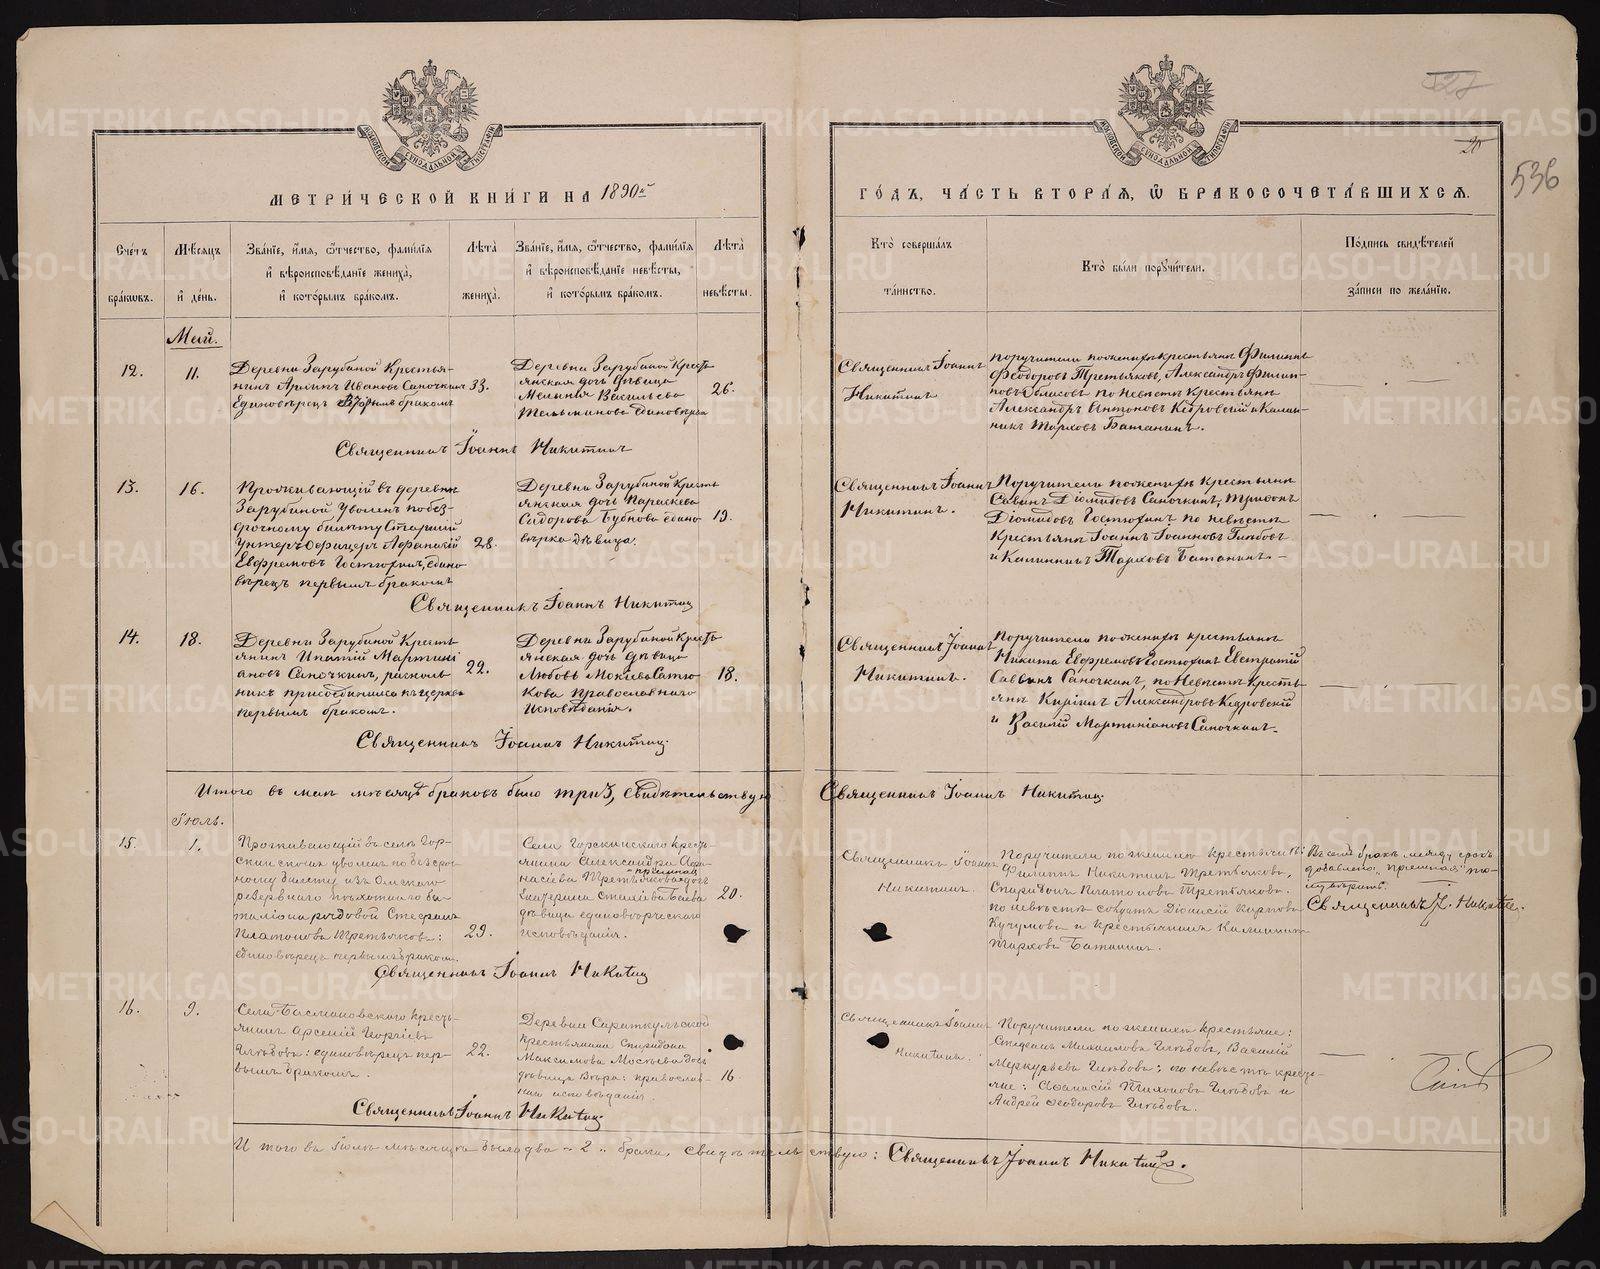 527
20
536
МОСКОВСКОЙ СѴНОДАЛЬНОЙ ТИПОГРАФІИ
МОСКОВСКОЙ СѴНОДАЛЬНОЙ ТИПОГРАФІИ
МЕТРИ́ЧЕСКОЙ КНИ́ГИ НА 1890й
ГО́ДЪ, ЧА́СТЬ ВТОРА́Я, Ѽ БРАКОСОЧЕТА́ВШИХСЯ.
Сче́тъ бра́кѡвъ.
Мѣ́сяцъ и҆ де́нь.
Зва́нїе, и҆́мя, ѻ҆́тчество, фами́лїя
и҆ вѣроисповѣ́данїе жениха̀,
и҆ кото́рымъ бра́комъ.
Лѣ́та жениха̀.
Зва́нїе, и҆́мя, ѻ҆́тчество, фами́лїя
и҆ вѣроисповѣ́данїе невѣ́сты,
и҆ кото́рымъ бра́комъ.
Лѣ́та невѣ́сты.
Кто̀ соверша́лъ та́инство.
Кто̀ бы́ли порꙋчи́тели.
По́дпись свидѣ́телей
за́писи по жела́нїю.
Май.
12.
11.
Деревни Зарубиной Крестья-
нинъ Иванов Саночкин
Единовѣрецъ Вторымъ бракомъ
33.
Деревни Зарубиной Кресть
янская дочь дѣвица
Меланія Васильева
Тельминова единовѣрка
26.
Священникъ Іоаннъ
Никитинъ
Поручители по женихѣ крестьяне Филиппъ
Ѳеодоровъ Третьяковъ, Александръ Филип-
повъ по невѣстѣ Крестьяне
Александръ Антоновъ Кедровскій и Калин-
никъ Тарховъ Батанинъ.
Священникъ Іоаннъ Никитинъ
13.
16.
Проживающій въ деревнѣ
Зарубиной Уволен по без-
срочному билету Старшій
Унтеръ Офицеръ Аѳанасій
Евфремовъ Гостюхинъ, едино
вѣрецъ первымъ бракомъ
28.
Деревни Зарубиной Кресть
янская дочь Параскева
Сидорова Бубнова едино
вѣрка дѣвица.
19.
Священникъ Іоаннъ
Никитинъ.
Поручители по женихѣ крестьяне
Саввинъ Діомидовъ Саночкинъ, Трифонъ
Діомидовъ Гостюхинъ по невѣстѣ
Крестьяне Іоаннъ Іоанновъ Глѣбовъ
и Калинникъ Тарховъ Батанинъ.
Священникъ Іоаннъ Никитин
14.
18.
Деревни Зарубиной Кресть
янинъ Ипатій Мартині
ановъ Саночкинъ, расколь
никъ присоединился къ церкви
первымъ бракомъ.
22.
Деревни Зарубиной Кресть
янская дочь дѣвица
Любовь Мокіева Сатю
кова Православнаго
Исповѣданія.
18.
Священникъ Іоаннъ
Никитинъ.
Поручители по женихѣ крестьяне
Никита Евфремовъ Гостюхинъ Евстратій
Саввинъ Саночкинъ, по Невѣстѣ Кресть
яне Кирикъ Александровъ Кедровскій
и Василій Мартиніановъ Саночкинъ.
Священникъ Іоаннъ Никитин.
Итого въ маѣ мѣсяцѣ браковъ было три 3, Свидѣтельствую Священникъ Іоаннъ Никитин.
Іюль.
15.
1.
Проживающій въ селѣ Гор-
скинскомъ уволен по безсроч
ному билету изъ Омскаго
резервнаго пѣхотнаго ба-
таліона рядовой Стефанъ
Платоновъ Третьяковъ:
единовѣрецъ первымъ бракомъ.
29.
Села Горскинскаго кресть
янина Александра Аѳа-
насіева Третьякова пріемная дочь
Екатерина
дѣвица единовѣрческаго
исповѣданія.
20.
Священникъ Іоаннъ
Никитинъ.
Поручители по женихѣ крестьяне:
Филиппъ Никитинъ Третьяковъ,
Спиридонъ Платоновъ Третьяковъ.
по невѣстѣ солдатъ Діонисій Карповъ
Кучумовъ и крестьянинъ Калинникъ
Тарховъ Батанинъ.
В сей бракъ между строкъ
добавлено: „пріемная" то-
му вѣрить.
Священникъ І. Никитин.
Священникъ Іоаннъ Никитин
16.
9.
Села Басмановскаго кресть-
янинъ Арсеній Георгіевъ
Глѣбовъ: единовѣрецъ пер-
вымъ бракомъ.
22.
Деревни Сараткульской
крестьянина Спиридона
Максимова Мосѣева дочь
дѣвица Вѣра: православ-
наго исповѣданія.
16.
Священникъ Іоаннъ
Никитинъ.
Поручители по женихѣ крестьяне:
Стефанъ Михаиловъ Глѣбовъ, Василій
Меркурьевъ Глѣбовъ; по невѣстѣ кресть-
яне: Аѳанасій Тихоновъ Глѣбовъ и
Андрей Ѳеодоровъ Глѣбовъ.
Священникъ Іоаннъ Никитин.
Итого въ Іюлѣ мѣсяцѣ было два – 2 „ брака, свидѣтельствую: Священникъ Іоаннъ Никитинъ.
METRIKI.GASO-URAL.RU